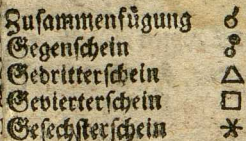 Zusammenfügung ☌
Gegenschein ☍
Gedritterschein △
Gevierterschein □
Gesechsterschein ⚹